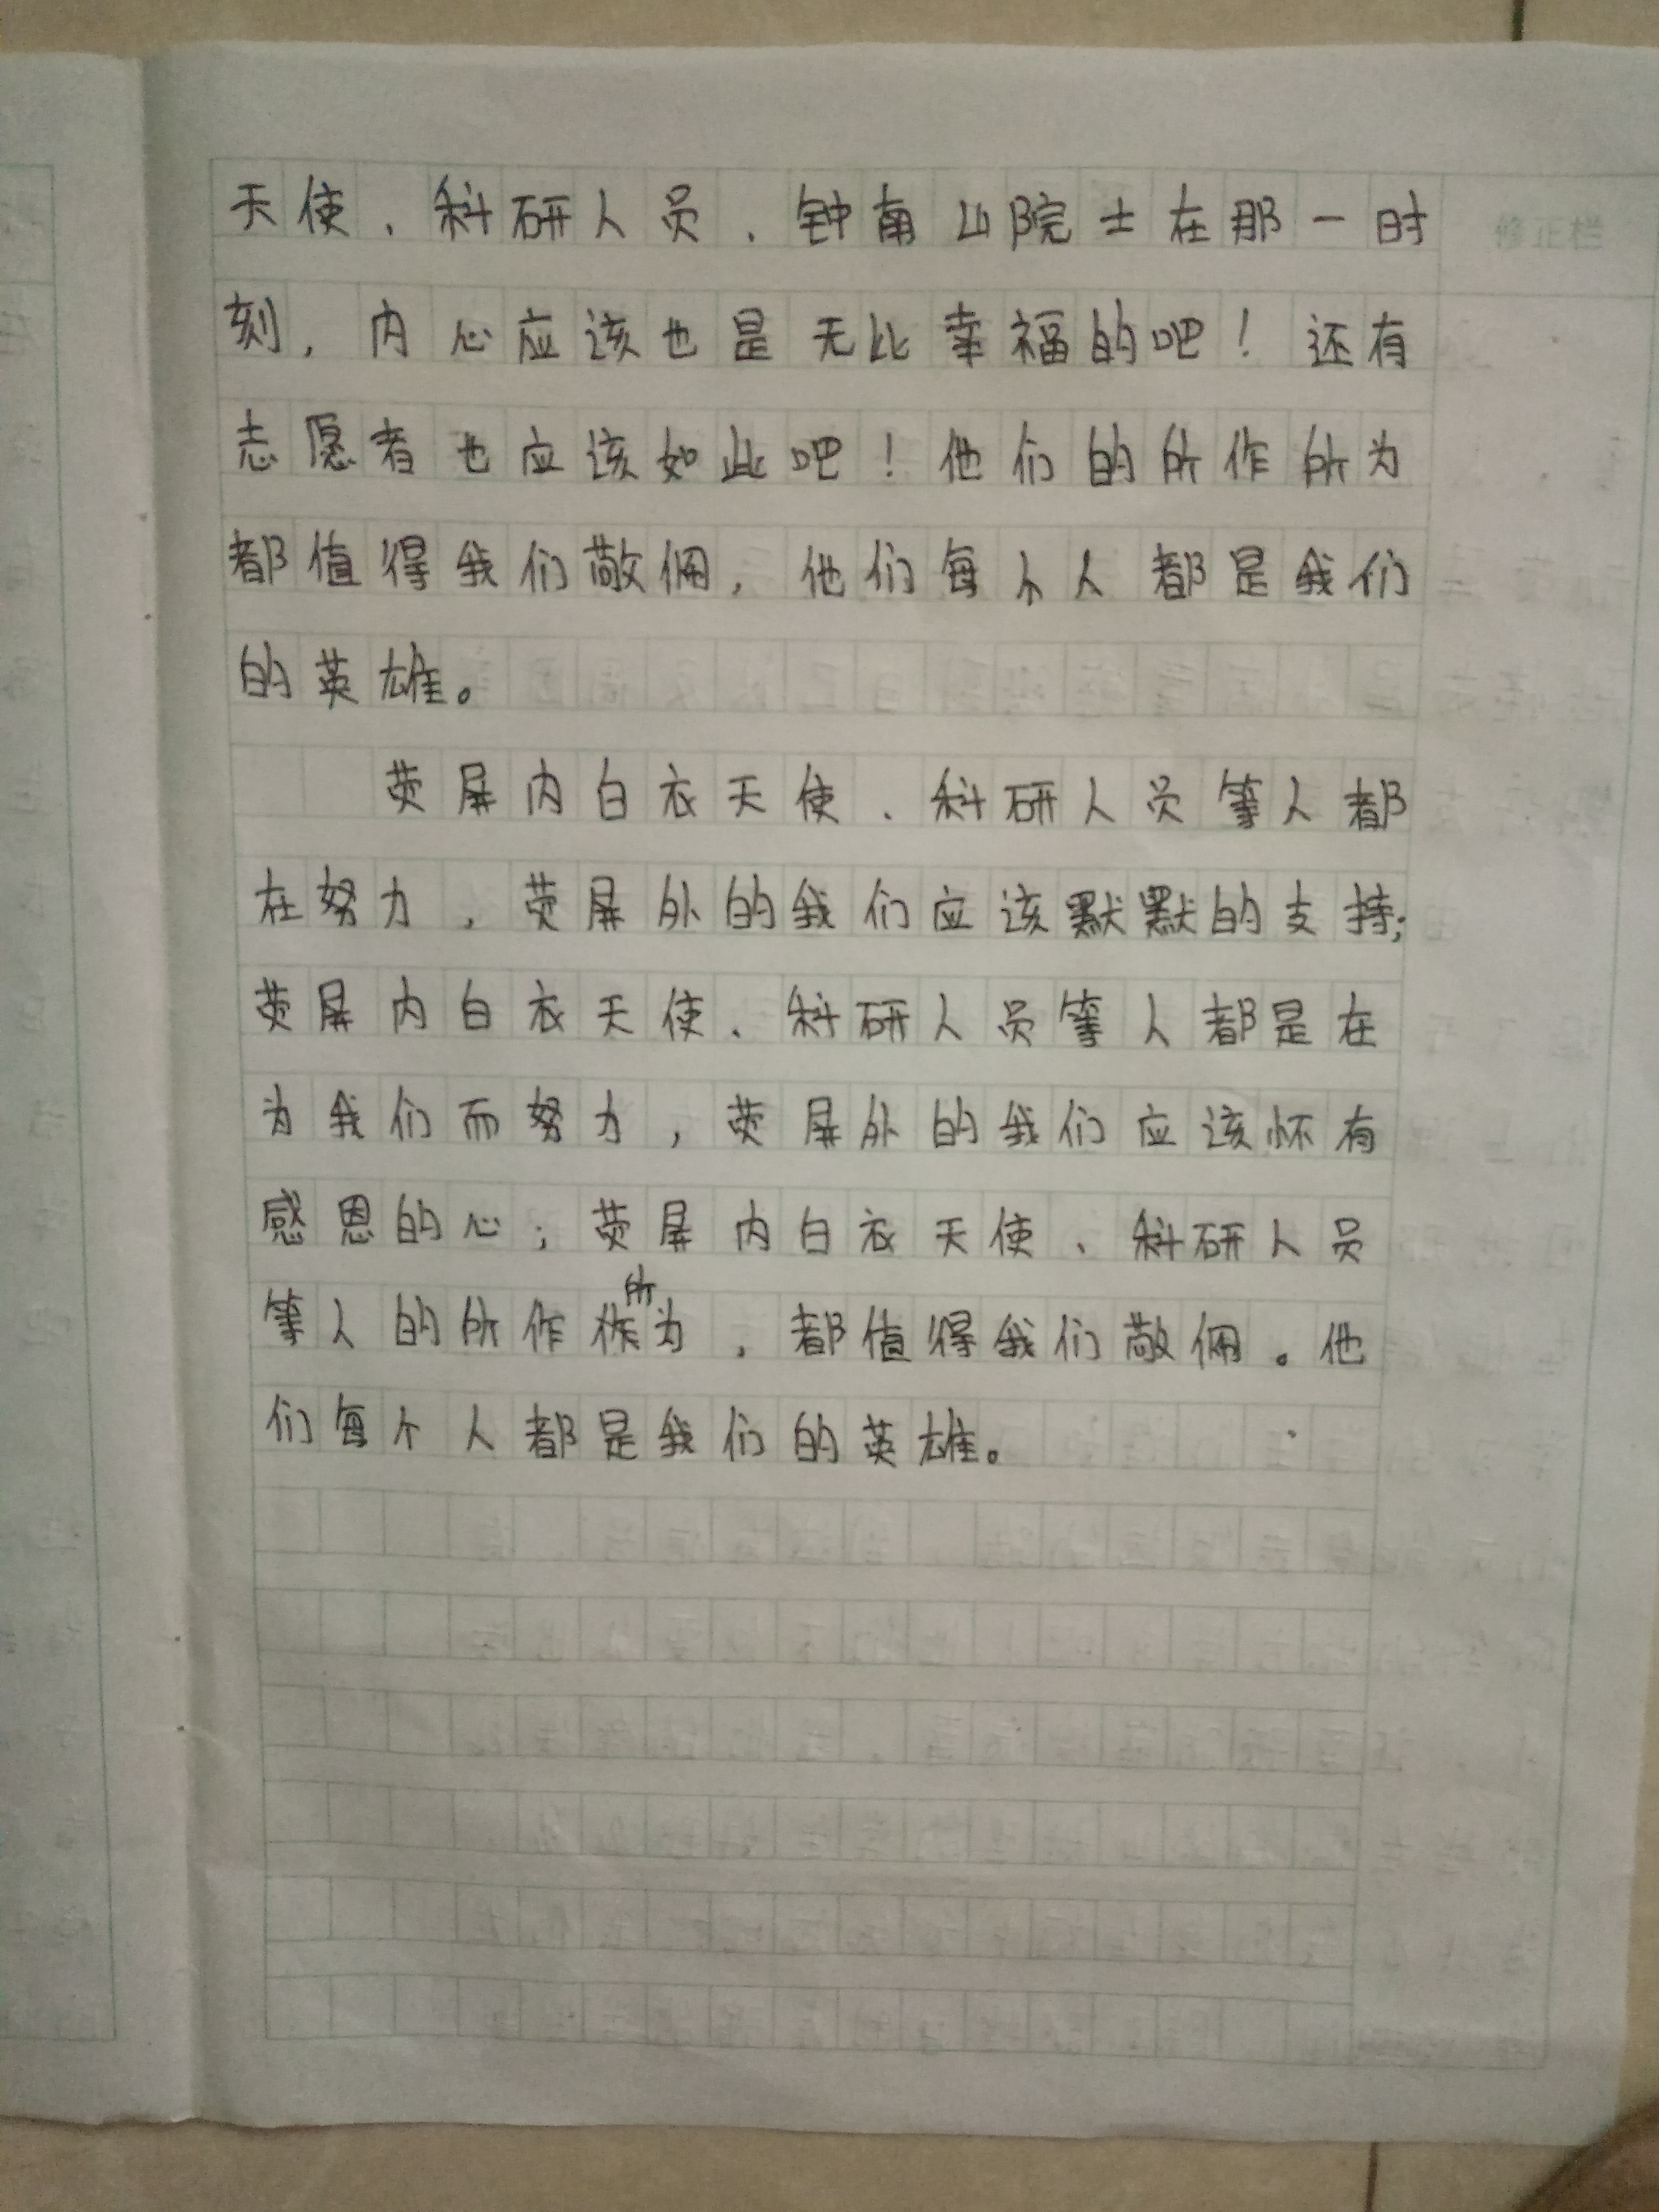 天使、科研人员、钟南山院士在那一时
刻，内心应该也是无比幸福的吧！还有
志愿者也应该如此吧！他们的所作所为
都值得我们敬佩，他们每个人都是我们
的英雄。
荧屏内白衣天使、科研人员等人都
在努力，荧屏外的我们应该默默的支持；
荧屏内白衣天使、科研人员等人都是在
为我们而努力，荧屏外的我们应该怀有
感恩的心；荧屏内白衣天使、科研人员
等人的所作所为，都值得我们敬佩。他
们每个人都是我们的英雄。
修正栏